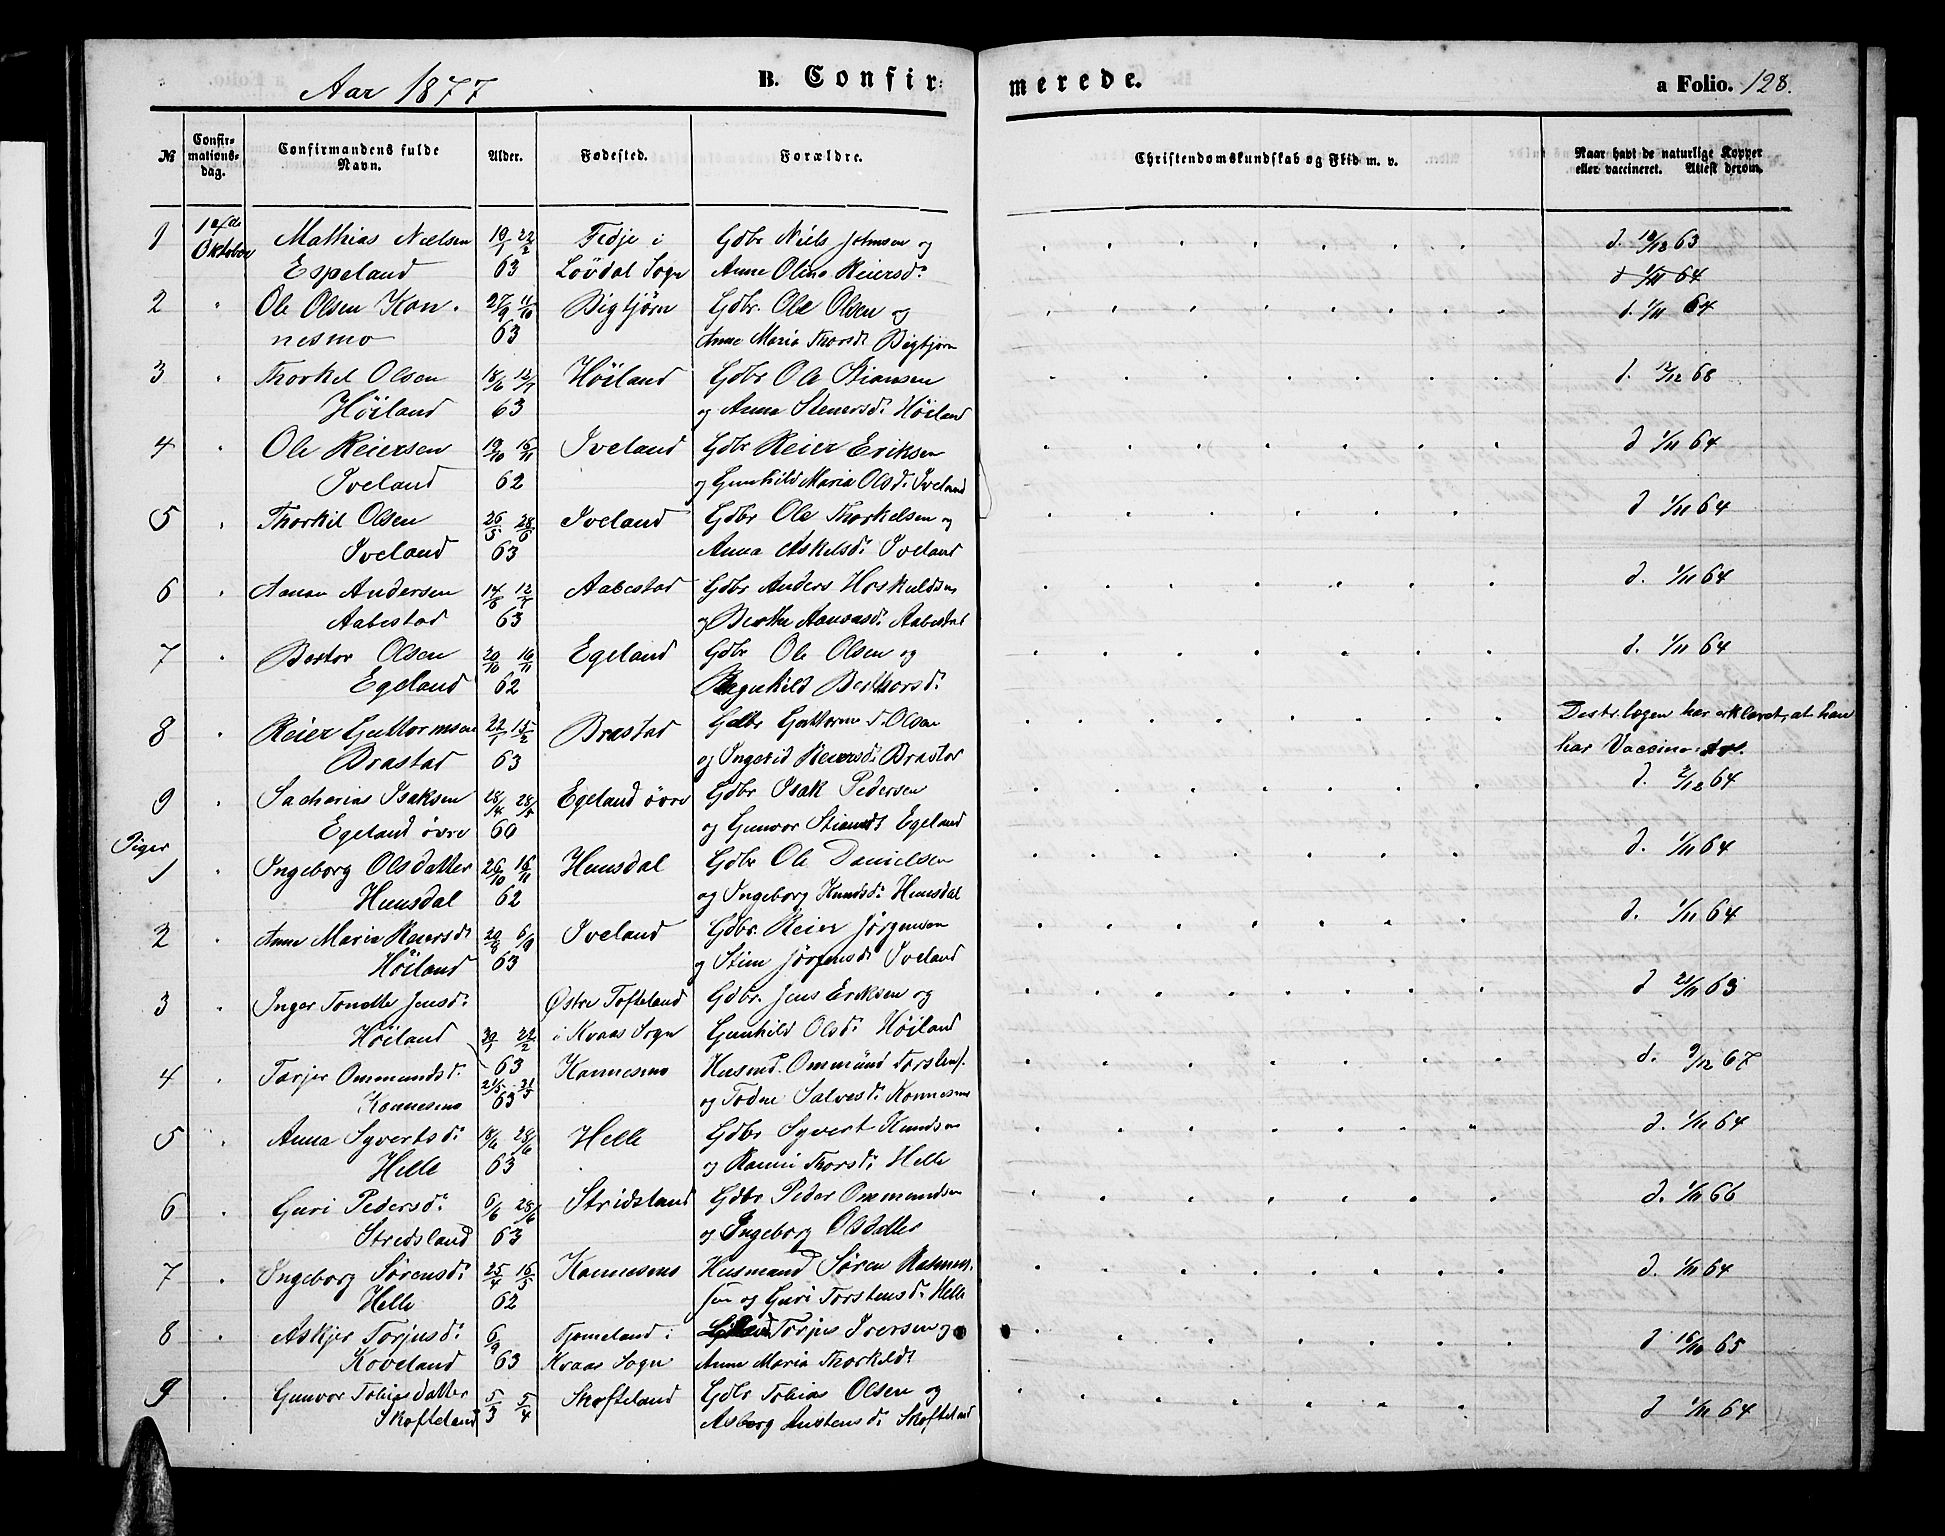 Aar 1877 B. Confirmerede. a Folio. 128.
№ Confirmationsdag. Confirmandens fulde Navn. Alder. Fødested. Forældre. Christendomskundskab og Flid m. v. Naar havt de naturlige Kopper eller vaccineret. Attest derom.
1 14de Mathias Nielsen 19/1 22/2 Fedje i Gdbr Niels Johnsen og d. 18/12 63
Oktober Espeland 63 Løvdal Sogn Anne Olina Reiersd: d 1/11 64
2 " Ole Olsen Kon- 27/9 11/10 Bigtjørn Gdbr. Ole Olsen og d. 1/11 64
nesmo 63 Anne Maria Thorsd: Bigtjørn
3 " Thorkel Olsen 18/6 12/7 Høiland Gdbr Ole Stiansen d. 12/12 68
Høiland 63 og Anna Stenersd: Høiland
4 " Ole Reiersen 19/10 16/11 Iveland Gdbr Reier Eriksen d 1/11 64
Iveland 62 og Gunhild Maria Olsd: Iveland
5 " Thorkil Olsen 26/5 28/6 Iveland Gdbr Ole Thorkelsen og d 1/11 64
Iveland 63 Anna Askelsd: Iveland
6 " Aanon Andersen 14/6 12/7 Aabestad Gdbr Anders Hoskuldsen d. 1/11 64
Aabestad 63 og Berthe Aanonsd: Aabestad
7 " Bertor Olsen 20/10 16/11 Egeland Gdbr Ole Olsen og d. 1/11 64
Egeland 62 Regnhild Berthorsd:
8 " Reier Guttormsen 22/1 15/2 Brastad Gdbr Guttorm T. Olsen Distr.lægen har erklæret, at han
Brastad 63 og Ingerid Reiersd: Brastad har Vaccine
9 Sacharias Isaksen 28/4 28/5 Egeland øvre Gdbr Isak Pedersen d. 2/12 64
Egeland øvre 60 og Gunvor Stiansd: Egeland
Piger
1 " Ingeborg Olsdatter 26/10 16/11 Hunsdal Gdbr Ole Danielsen d. 1/11 64
Hunsdal 62 og Ingeborg Knudsd: Hunsdal
2 " Anne Maria Reiersd: 20/8 6/9 Iveland Gdbr. Reier Jørgensen d. 1/11 64
Høiland 63 og Stine Jørgensd: Iveland
3 " Inger Tonette Jensd: Østre Tofteland Gdbr. Jens Eriksen og d 21/11 63
Høiland 20/1 22/2 i Kvaas Sogn Gunhild Olsd: Høiland
63
4 " Torjer Ommundsd: 21/5 31/5 Konnesmo Husmd. Ommund Torstens. d. 9/12 67
Konnesmo 63 og Todne Salvesd: Konnesmo
5 " Anna Syvertsd: 18/6 28/6 Helle Gdbr Syvert Knudsen d. 1/11 64
Helle 63 og Ranni Thorsd: Helle
6 " Guri Pedersd: 6/6 28/6 Stridsland Gdbr Peder Ommundsen d. 1/11 66
Stridsland 63 og Ingeborg Olsdatter
7 " Ingeborg Sørensd: 25/4 16/5 Konnesmo Husmand Søren Rasmus- d. 1/11 64
Helle 62 sen og Guri Torstensd: Helle
8 " Askjer Torjusd: 6/9 Tjomeland i Torjus Iversen og d 16/10 65
Koveland 63 Kvaas Sogn Anne Maria Thorkildsd:
9 " Gunvor Tobiasdatter 5/3 5/4 Skofteland Gdbr Tobias Olsen og d 1/11 64
Skofteland Asborg Austensd: Skofteland